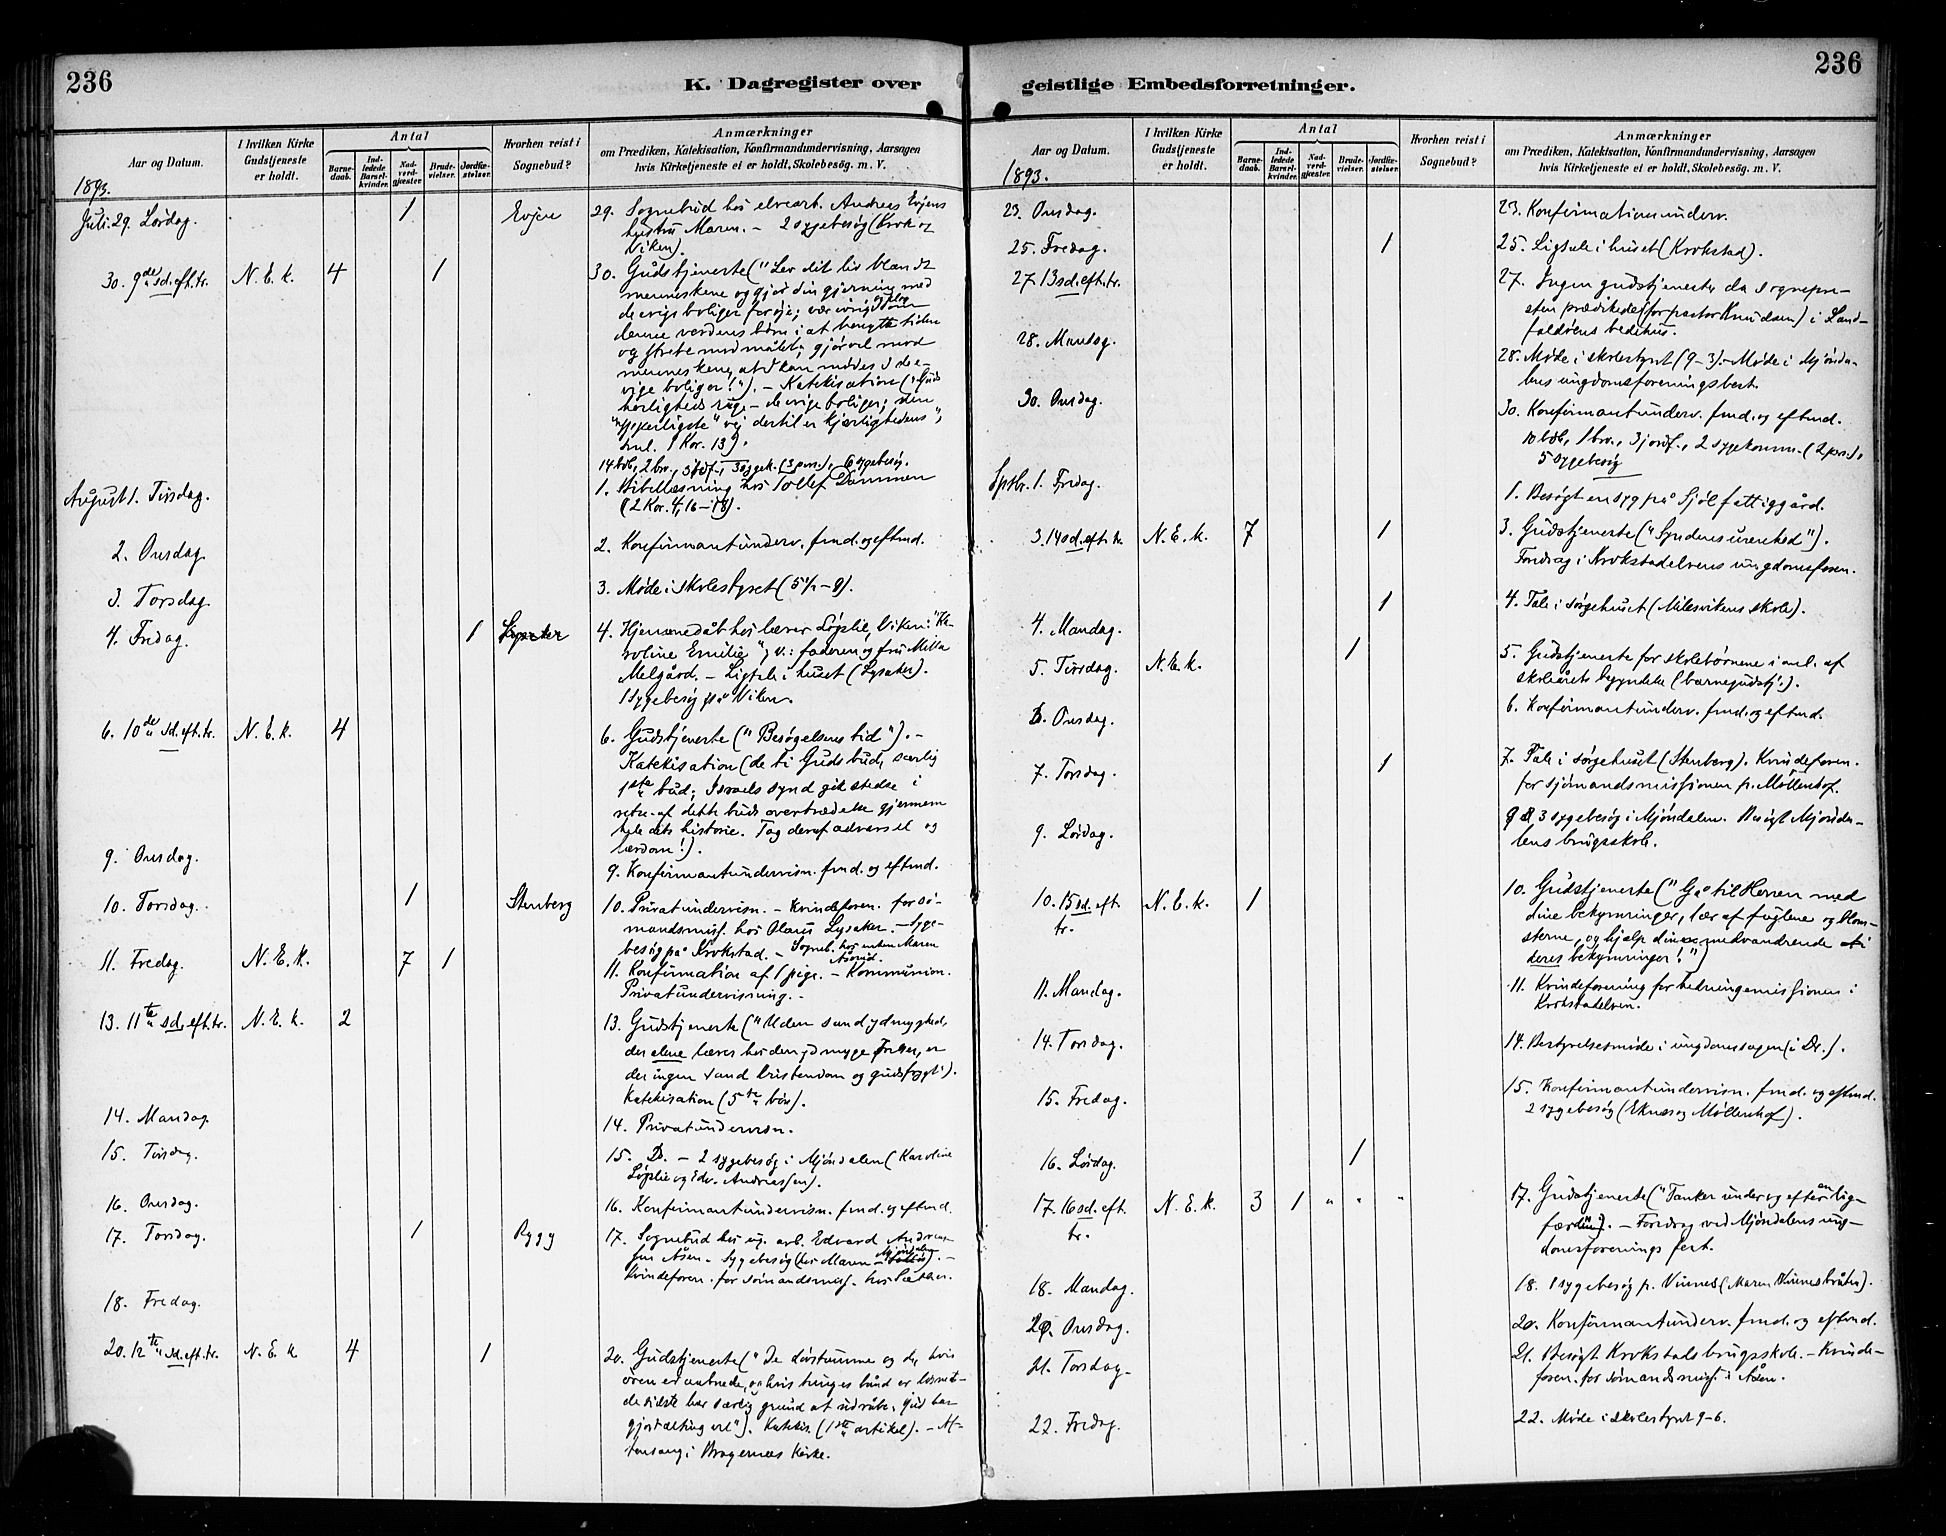 236
K. Dagregister over
Aar og Datum.
I hvilken Kirke Gudstjeneste er holdt.
Antal
Barnedaab.
Indledede Barselkvinder.
Nadverdgjæster.
Brudevielser.
Jordfæstelser.
Hvorhen reist i Sognebud?
Anmærkninger
om Prædiken, Katekisation, Konfirmandundervisning, Aarsagen
hvis Kirketjeneste ei er holdt, Skolebesøg. m. V.
1893.
Juli 29. Lørdag. 1 Evjen 29. Sognebud hos elvearb. Andreas Evjens
hustru Maren. – 2 sygebesøg (Krok og
Viken).
30. 9de sd. eft. tr. N. E. k. 4 1 30. Gudstjeneste ("Lev dit liv blandt
menneskene og gjør din gjerning med
de evige boliger for øje; vær ivrig som
denne verdens børn i at benytte tiden
og stræbe mod målet; gjør vel mod
menneskene, at I kan mødes i de e-
vige boliger!"). – Katekisation ("Guds
herligheds rige – de evige boliger; den
"ypperligste" vej dertil er kjærlighedens",
1 Kor. 13).
14 bdb, 2 brv., jordf., 3 sygek. (3 pers.), 6 sygebesøg.
August 1. Tirsdag. 1. Bibellæsning hos Tollef Dammen
(2 Kor. 4, 16–18).
2. Onsdag 2. Konfirmantunderv. fmd. og eftmd.
3. Torsdag. 3. Møde i skolestyret (5½–9).
4. Fredag. 1 4. Hjemmedåb hos lærer Løplie, Viken: "Ka-
roline Emilie", v.: faderen og fru Milla
Melgård. – Ligtale i huset (Lysaker).
1 sygebesøg på Viken.
6. 10de sd. eft. tr. N. E. k. 4 6. Gudstjeneste ("Besøgelsens tid"). –
Katekisation (de ti Guds bud, særlig
1ste bud; Israels synd gik stedse i
retn. af dette buds overtrædelse gjennem
hele dets historie. Tag deraf advarsel og
lærdom!).
9. Onsdag. 9. Konfirmantundervisn. fmd. og eftmd.
10. Torsdag. 1 Stenberg 10. Privatundervisn. – Kvindeforen. for sø-
mandsmis. hos Olaus Lysaker. – Syge-
besøg på Krokstad. – Sogneb. hos enken Maren
11. Fredag. N. E. k. 7 1 11. Konfirmation af 1 pige. – Kommunion.
Privatundervisning. –
13. 11te sd. eft. tr. N. E. k. 2 13. Gudstjeneste ("Uden sand ydmyghed,
der alene læres hos den ydmyge Frelser, er
der ingen sand kristendom og gudsfrygt").
Katekisation (5te bøn).
14. Mandag 14. Privatundervisn.
15. Tirsdag. 15. Do. – 2 sygebesøg i Mjøndalen (Karoline
Løplie og Edv. Andreassen).
16. Onsdag 16. Konfirmantundervisn. fmd. og eftmd.
17. Torsdag. 1 Rygg 17. Sognebud hos ug. arb. Edvard Andreas-
sen Åsen. Sygebesøg (hos Maren
Kvindeforen. for sømandsmis. hos Sæther.
18. Fredag.
20. 12te sd. eft. tr. N. E. k 4 1 20. Gudstjeneste ("De døvstumme og de, hvis
øren er aabnede, og hvis tunges bånd er løsnet –
de sidste har særlig grund at udråbe: Gud har
gjort alting vel"). Katekis. (1ste artikel). – Af-
tensang i Bragernæs kirke.
geistlige Embedsforretninger.
236
Aar og Datum.
I hvilken Kirke Gudstjeneste er holdt.
Antal
Barnedaab.
Indledede Barselkvinder.
Nadverdgjæster.
Brudevielser.
Jordfæstelser.
Hvorhen reist i Sognebud?
Anmærkninger
om Prædiken, Katekisation, Konfirmandundervisning, Aarsagen
hvis Kirketjeneste ei er holdt, Skolebesøg. m. V.
1893.
23. Onsdag. 23. Konfirmationsunderv.
25. Fredag. 1 25. Ligtale i huset (Krokstad).
27. 13 sd. eft. tr. 27. Ingen gudstjeneste, da sognepre-
sten prædikede (for pastor Knudsen) i Land-
faldøens bedehus.
28. Mandag. 28. Møde i skolestyret (9–3). – Møde i Mjønda-
lens ungdomsforenings best.
30. Onsdag. 30. Konfirmantunderv. fmd. og eftmd.
10 bdb., 1 brv., 3 jordf., 2 sygekomm. (2 pers.),
5 sygebesøg
Sptbr. 1. Fredag. 1. Besøgt en syg på Sjøl fattiggård.
3. 14 sd. eft. tr. N. E. k. 7 1 3. Gudstjeneste ("Syndens urenhed").
Foredrag i Krokstadelvens ungdomsforen.
4. Mandag. 1 4. Tale i sørgehuset (Milesvikens skole).
5. Tirsdag. N. E. k. 1 5. Gudstjeneste for skolebørnene i anl. af
skoleårets begyndelse (barnegudstj.).
6. Onsdag. 6. Konfirmantunderv. fmd. og eftmd.
7. Torsdag. 1 7. Tale i sørgehuset (Stenberg). Kvindeforen.
for sjømandsmissjonen p. Møllenhof.
9. Lørdag. 9. 3 sygebesøg i Mjøndalen. Besøgt Mjønda-
lens brugsskole.
10. 15 sd. eft. tr. N. E. k. 1 10. Gudstjeneste ("Gå til Herren med
dine bekymringer, lær af fuglene og blom-
sterne, og hjælp dine medvandrende i
deres bekymringer!")
11. Mandag. 11. Kvindeforening for hedningemissjonen i
Krokstadelven.
14. Torsdag. 14. Bestyrelsesmøde i ungdomssagen (i Dr.).
15. Fredag. 15. Konfirmantundervisn. fmd. og eftmd.
2 sygebesøg (Eknes og Møllenhof).
16. Lørdag. 1
17. 16 sd. eft. tr. N. E. k. 3 1 " " " 17. Gudstjeneste ("Tanker under og efter en lig-
færd"). – Foredrag ved Mjøndalens ung-
domsforenings fest.
18. Mandag. 18. 1 sygebesøg p. Vinnes (Maren Vinnesbråten).
20. Onsdag. 20. Konfirmantunderv. fmd. og eftmd.
21. Torsdag. 21. Besøgt Krokstads brugsskole. – Kvinde-
foren. for sømandsmis. i Åsen.
22. Fredag. 22. Møde i skolestyret 9–6.